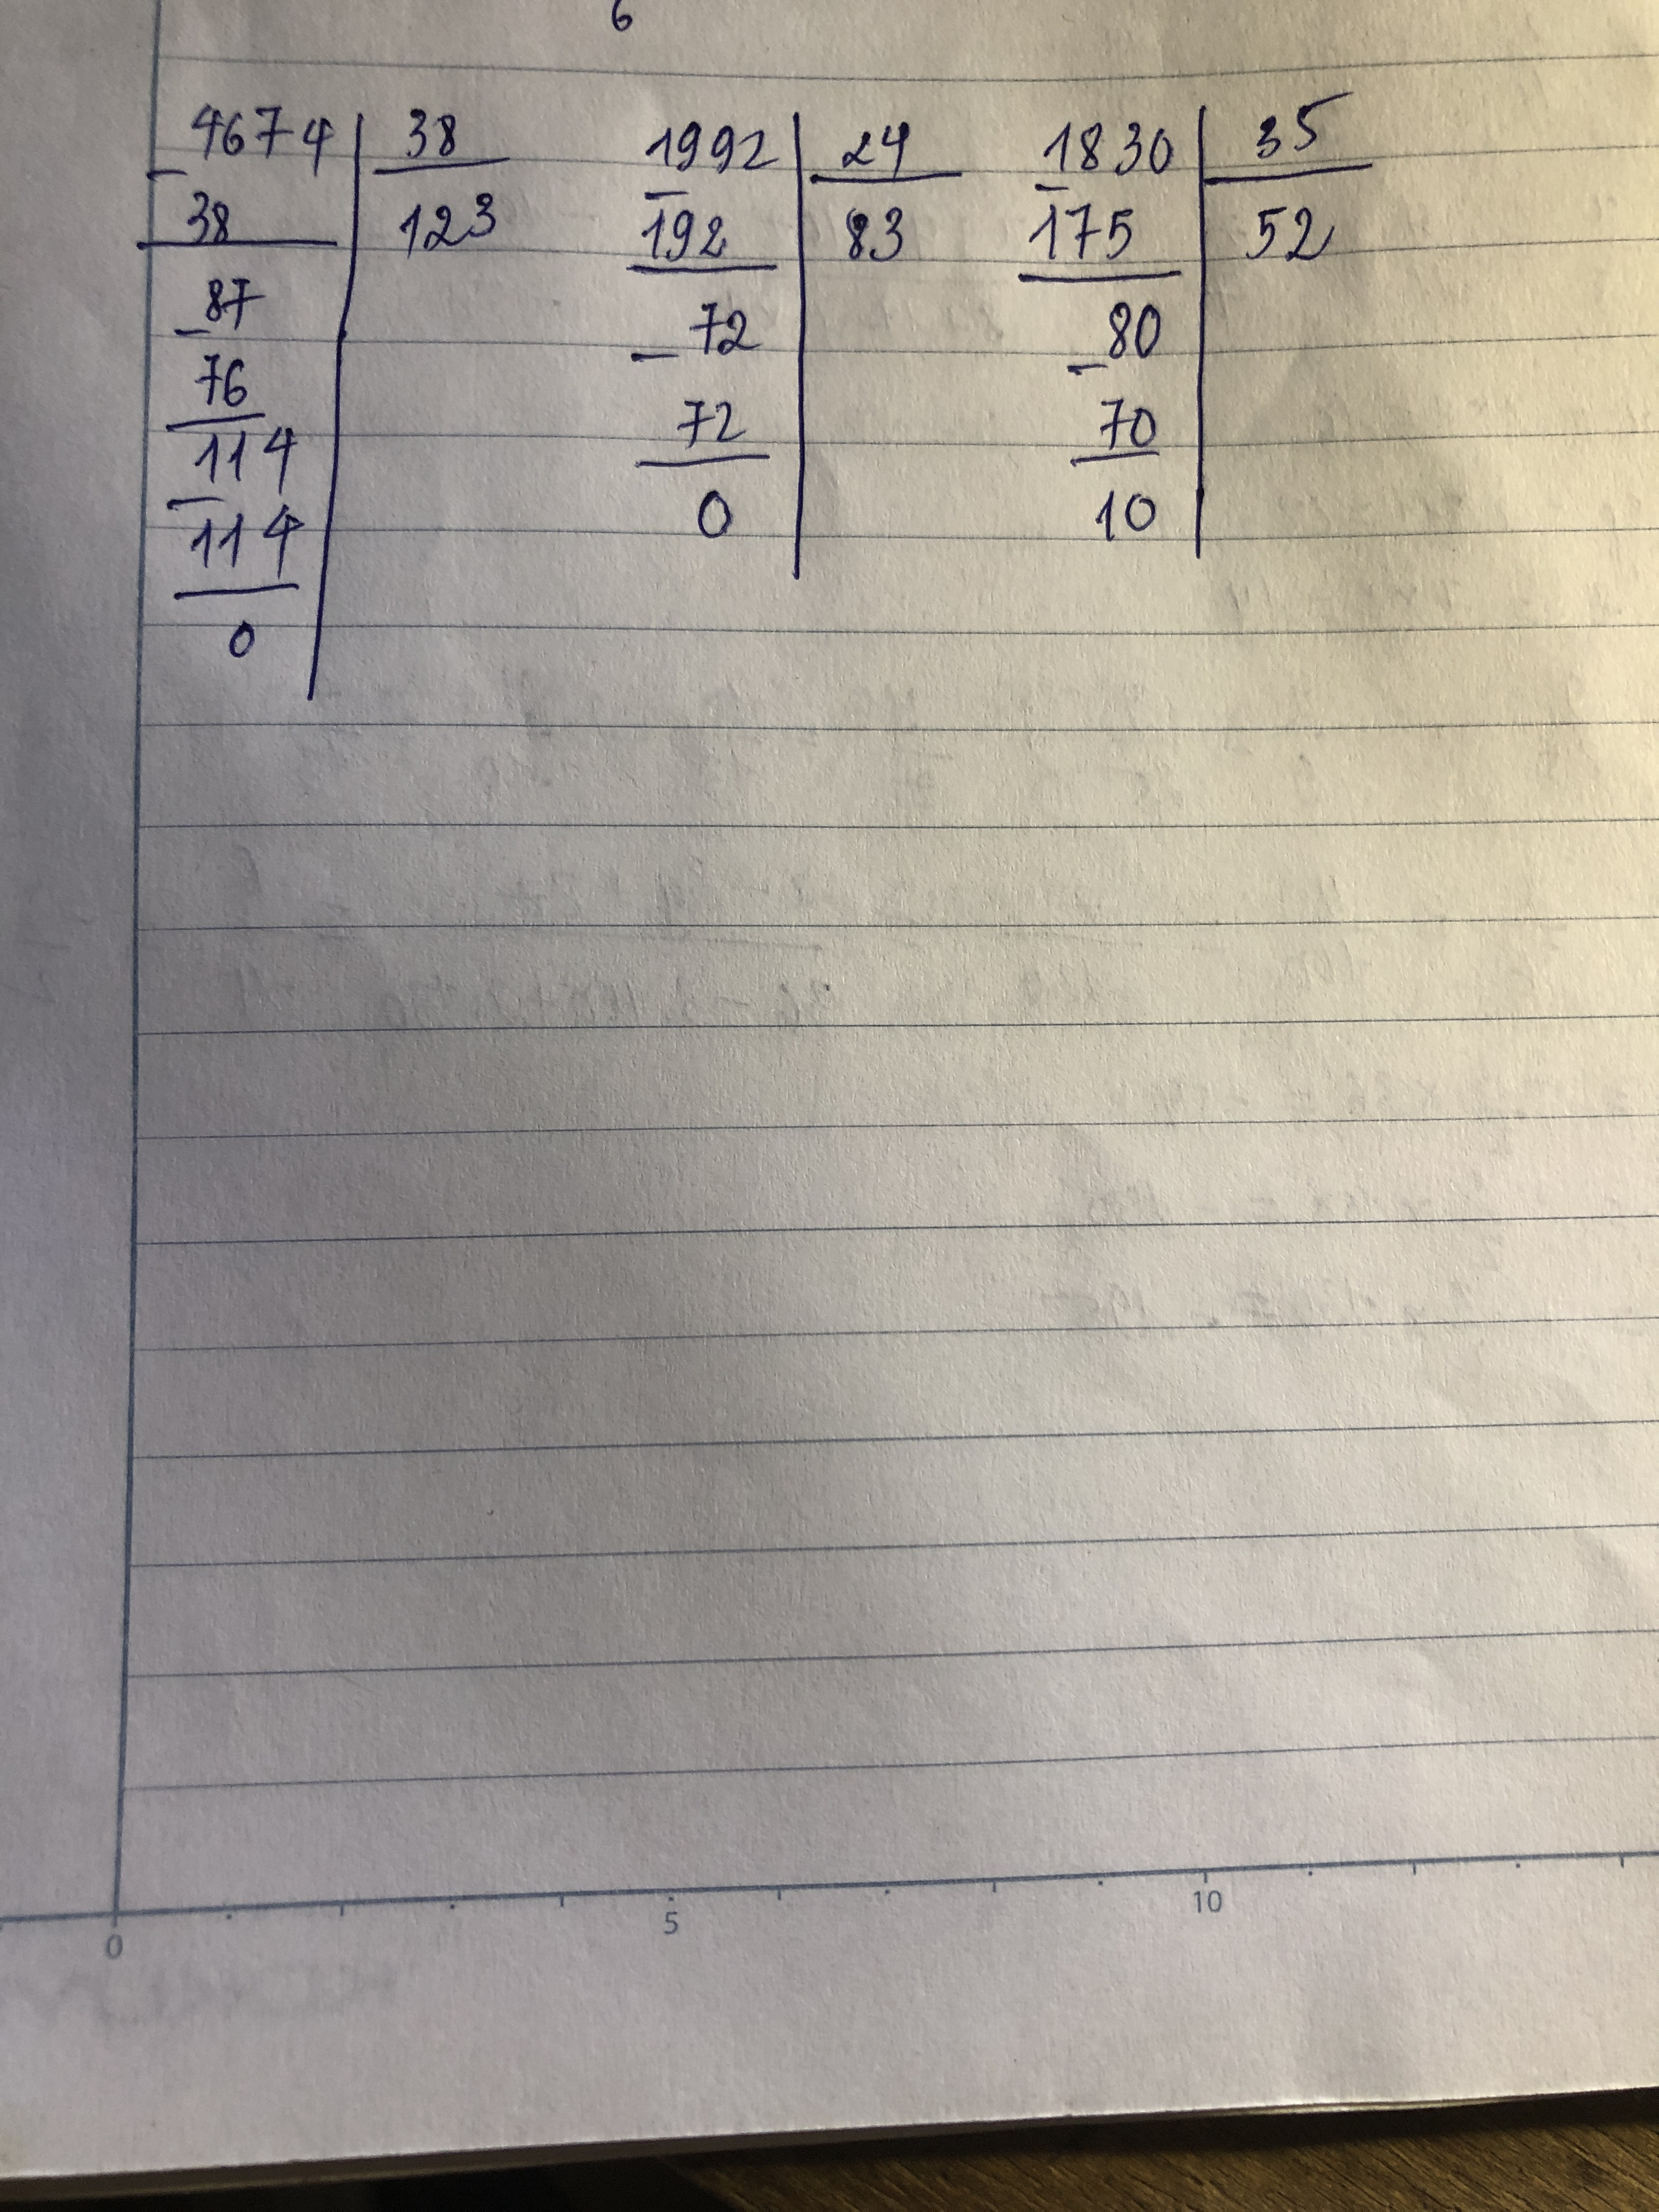 6
4674 38
- 38 123
- 87
76
114
- 114
0
1992 24
- 192 83
- 72
72
0
1830 35
- 175 52
- 80
70
10
0 5 10